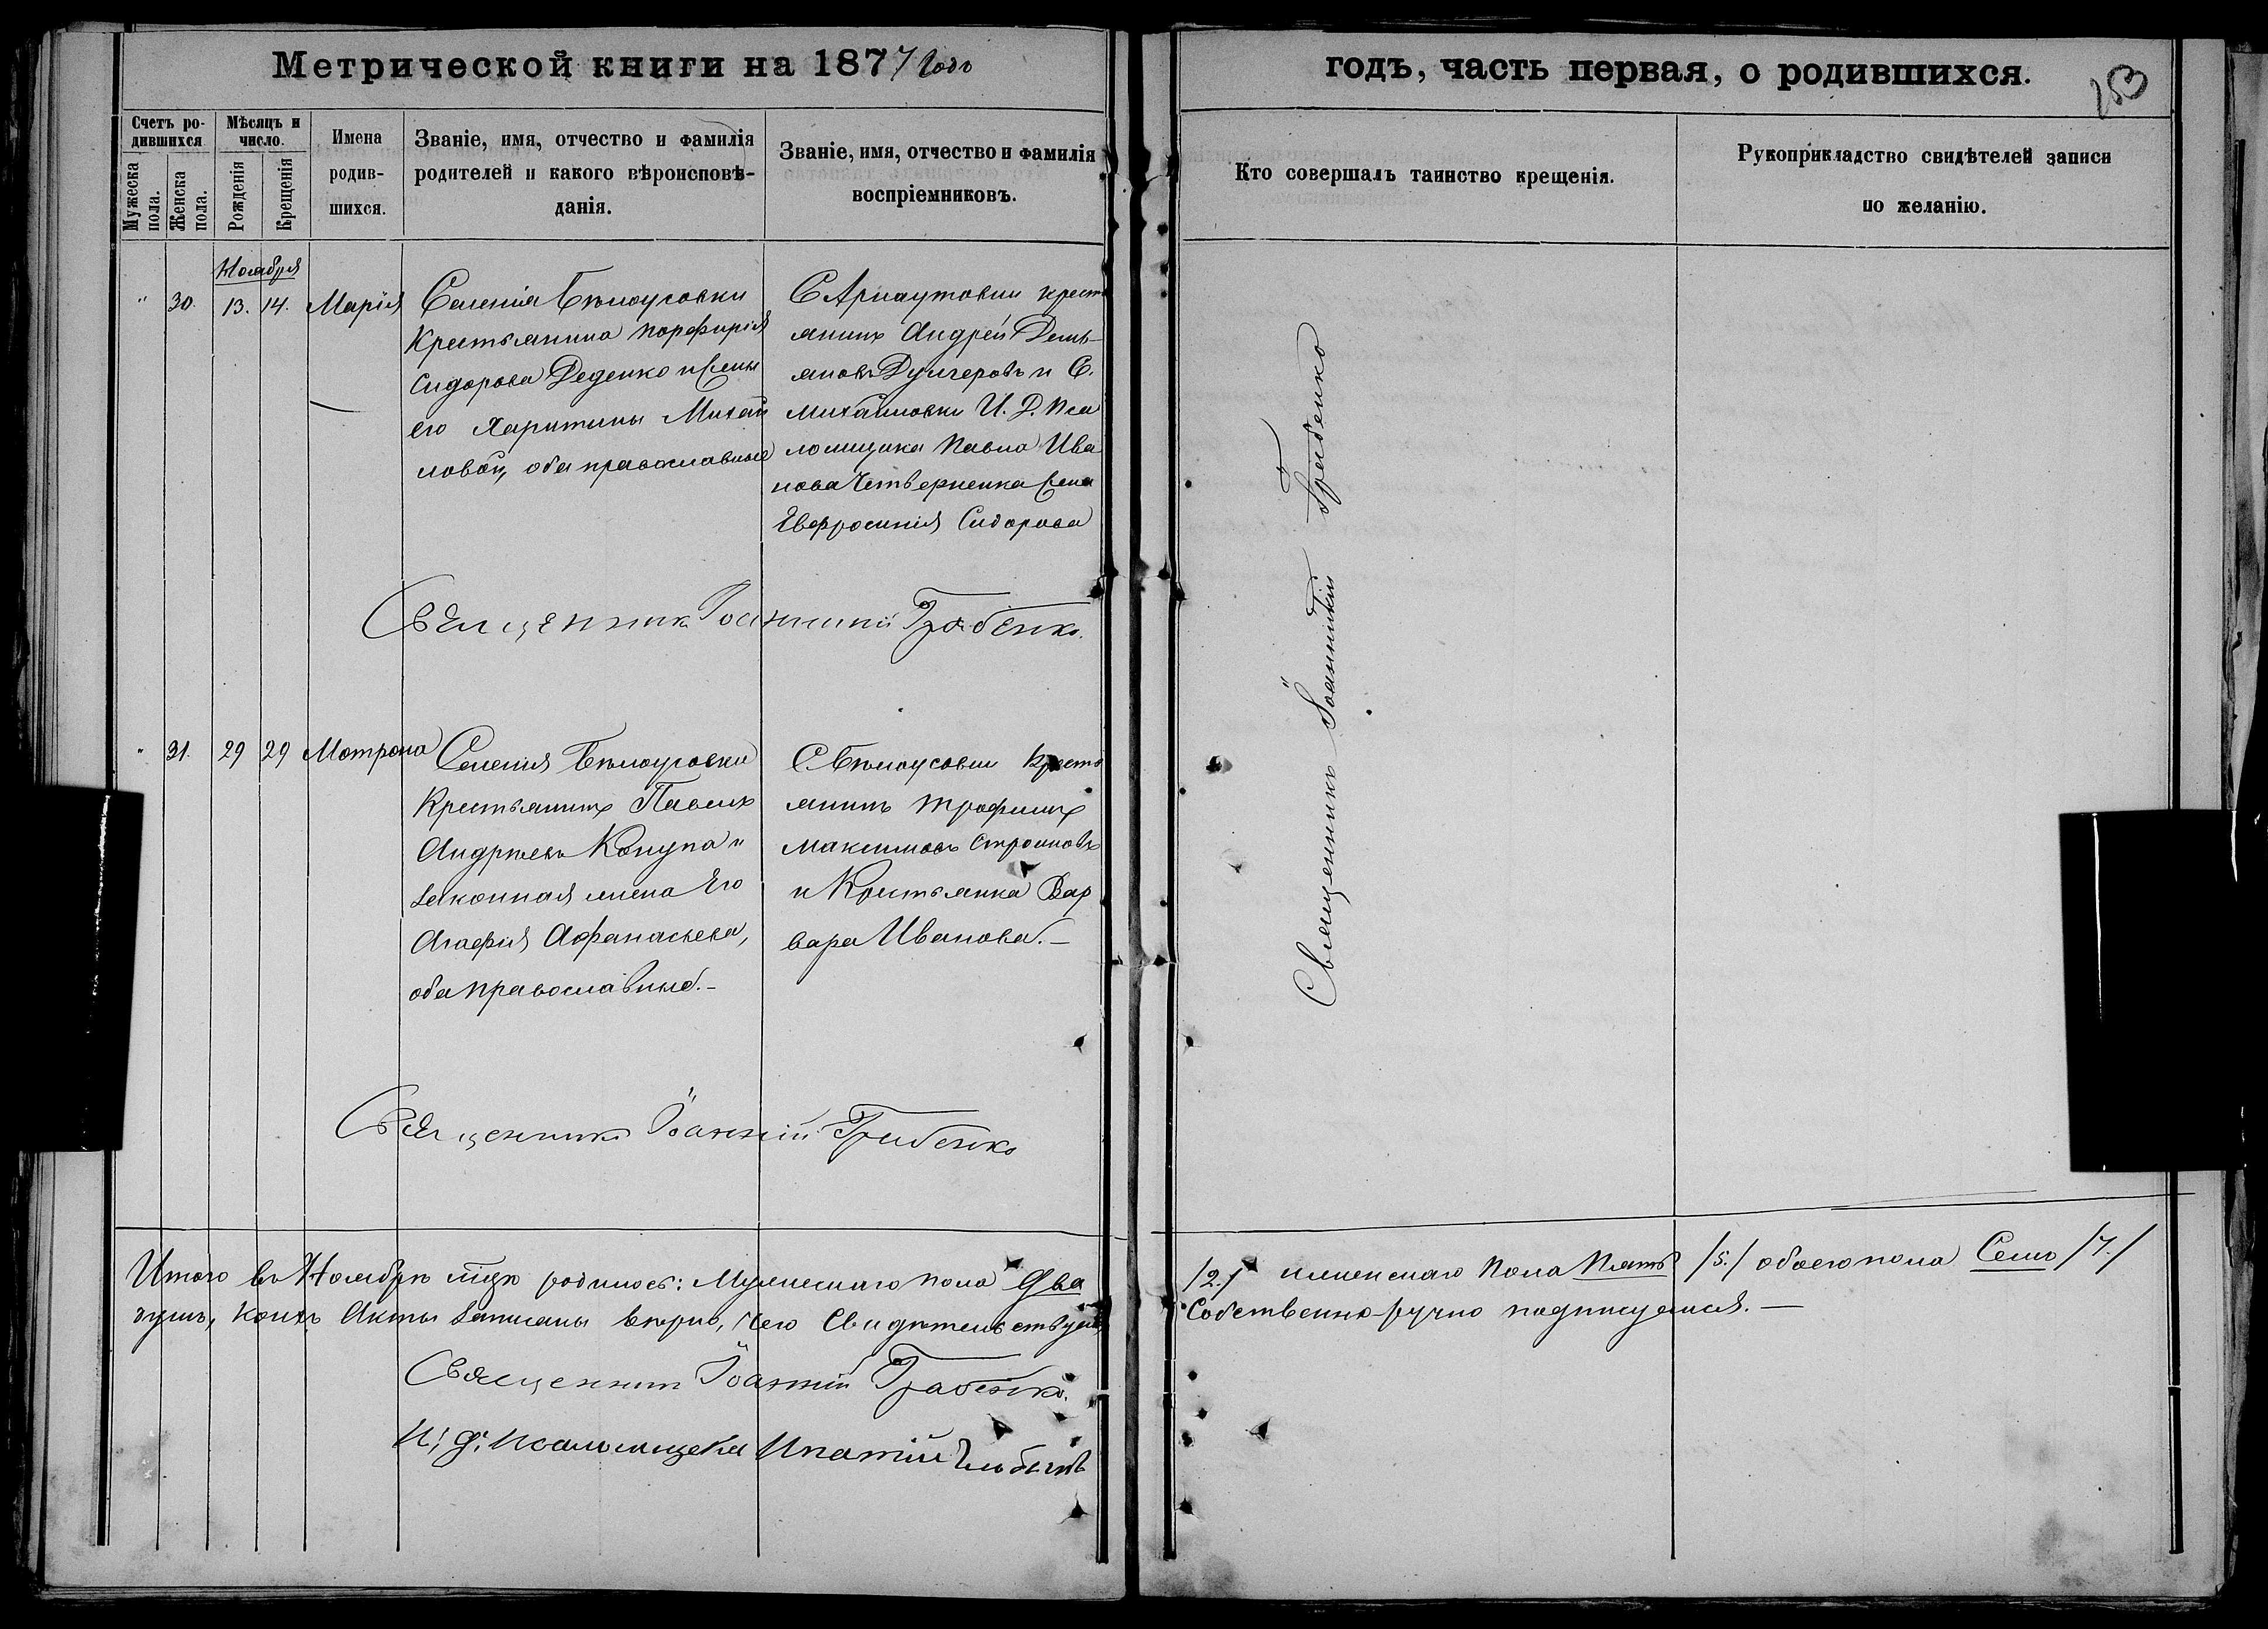 Метрической книги на 1877 Годъ
годъ, часть первая, о родившихся.
153
Счетъ ро-
дившихся
Мужеска пола.
Женска пола.
Мѣсяцъ и
число.
Рожденія
Крещенія
Имена
родив-
шихся.
Званіе, имя, отчество и фамилія
родителей и какого вѣроисповѣ-
данія.
Званіе, имя, отчество и фамилія
воспріемниковъ.
Кто совершалъ таинство крещенія.
Рукоприкладство свидѣтелей записи
по желанію.
Ноября
" 30. 13. 14. Марія
Селенія Бѣлоусовки
Крестьянина Порфирія
Сидорова Деденко и жены
его Харитины Михай
ловой, оба православные
С. Арнаутовки крестъ
янинъ Андрей Демь-
яновъ Дулгеровъ и С.
Михайловки И. Д. Пса
ломщика Павла Ива
нова Четверненка жена
Евфросинія Сидорова
Священникъ Іоанникій Грабенко.
" 31. 29 29 Мотрона
Селенія Бѣлоусовки
Крестьянинъ Павелъ
Андрѣевъ Копупа и
законная жена Его
Агафія Афанасьева,
оба православные.-
С. Бѣлоусовки Кресть
янинъ Трофимъ
Максимовъ Строиновъ
и Крестьянка Вар
вара Иванова.-
Священникъ Іоанникій Грабенко
Священникъ Іоанникій Грабенко
Итого въ Ноябрѣ м͠цѣ родилось: Мужескаго пола Два
/2./ женскаго пола Пять /5./ обоего пола Семь /7./
душъ, коихъ Акты записаны вѣрно, чего Свидѣтельствуемъ
Собственно-ручно подписуемся.—
Священникъ Іоанникій Грабенко.
И. д. псаломщика Ипатій